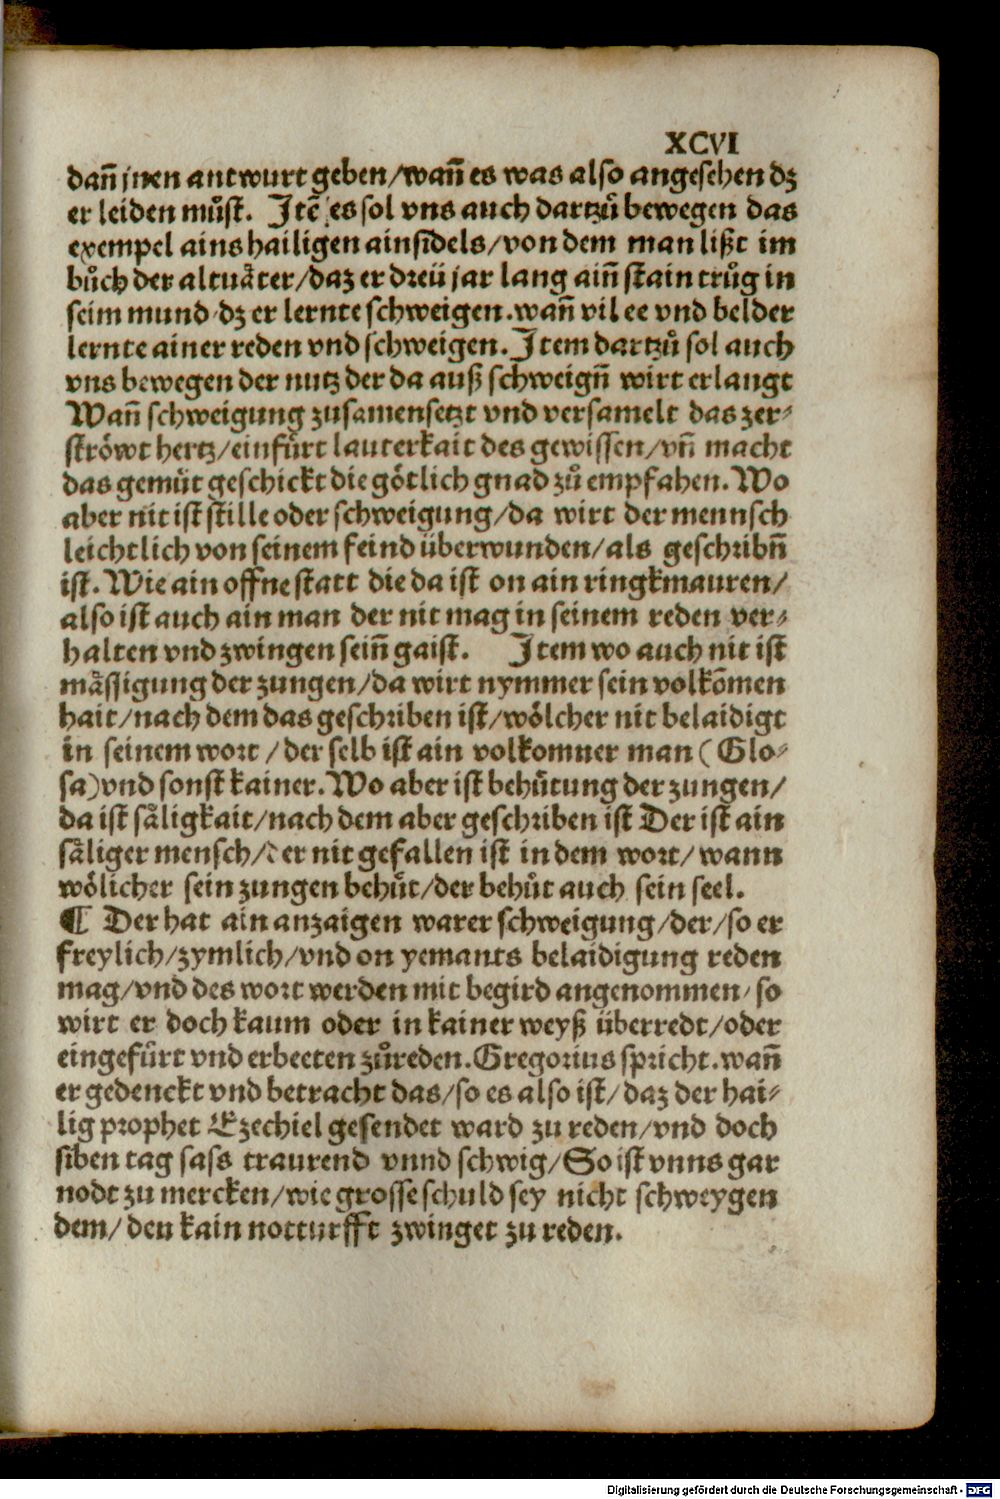 XCVI
dañ jnen antwurt geben/wañ es was also angesehen dz
er leiden muͦst. Jtē es sol vns auch dartzuͦ bewegen das
exempel ains hailigen ainsidels/von dem man lißt im
buͦch der altuaͤter/daz er dreü jar lang aiñ stain truͦg in
seim mund dz er lernte schweigen.wañ vil ee vnd belder
lernte ainer reden vnd schweigen.Jtem dartzuͦ sol auch
vns bewegen der nutz der da auß schweigñ wirt erlangt
Wañ schweigung zusamensetzt vnd versamelt das zer-
stroͤwt hertz/einfuͤrt lauterkait des gewissen/vñ macht
das gemuͤt geschickt die goͤtlich gnad zuͦ empfahen.Wo
aber nit ist stille oder schweigung/da wirt der mennsch
leichtlich von seinem feind überwunden/als geschribñ
ist.Wie ain offne statt die da ist on ain ringkmauren/
also ist auch ain man der nit mag in seinem reden ver-
halten vnd zwingen seiñ gaist. Jtem wo auch nit ist
maͤssigung der zungen/da wirt nymmer sein volkōmen
hait/nach dem das geschriben ist/woͤlcher nit belaidigt
in seinem wort/der selb ist ain volkomner man(Glo-
sa)vnd sonst kainer.Wo aber ist behuͤtung der zungen/
da ist saͤligkait/nach dem aber geschriben ist Der ist ain
saͤliger mensch/der nit gefallen ist in dem wort/wann
woͤlicher sein zungen behuͤt/der behuͤt auch sein seel.
¶ Der hat ain anzaigen warer schweigung/der/so er
freylich/zymlich/vnd on yemants belaidigung reden
mag/vnd des wort werden mit begird angenommen/so
wirt er doch kaum oder in kainer weyß überredt/oder
eingefuͤrt vnd erbeeten zuͦreden.Gregorius spricht.wañ
er gedenckt vnd betracht das/so es also ist/daz der hai-
lig prophet Ezechiel gesendet ward zu reden/vnd doch
siben tag sass traurend vnnd schwig/So ist vnns gar
nodt zu mercken/wie grosse schuld sey nicht schweygen
dem/den kain notturfft zwinget zu reden.
Digitalisierung gefördert durch die Deutsche Forschungsgemeinschaft - DFG